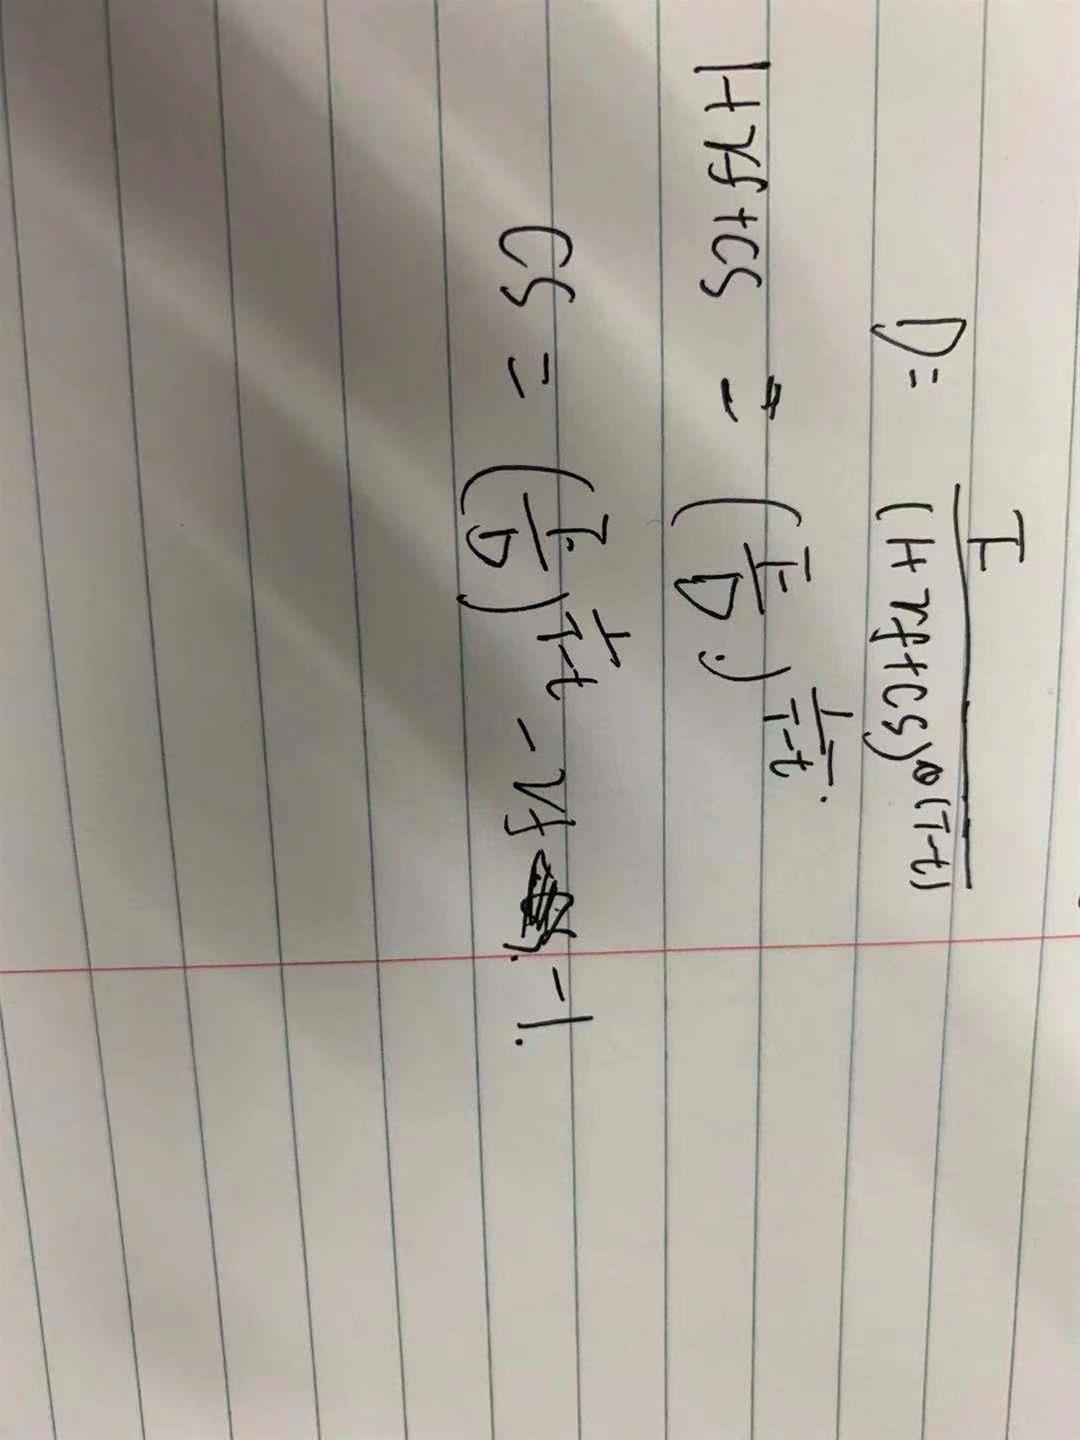 D = I / (1+rf+cs)^(T-t)
1+rf+cs = (I/D)^(1/(T-t)).
cs = (I/D)^(1/(T-t)) - rf - 1.